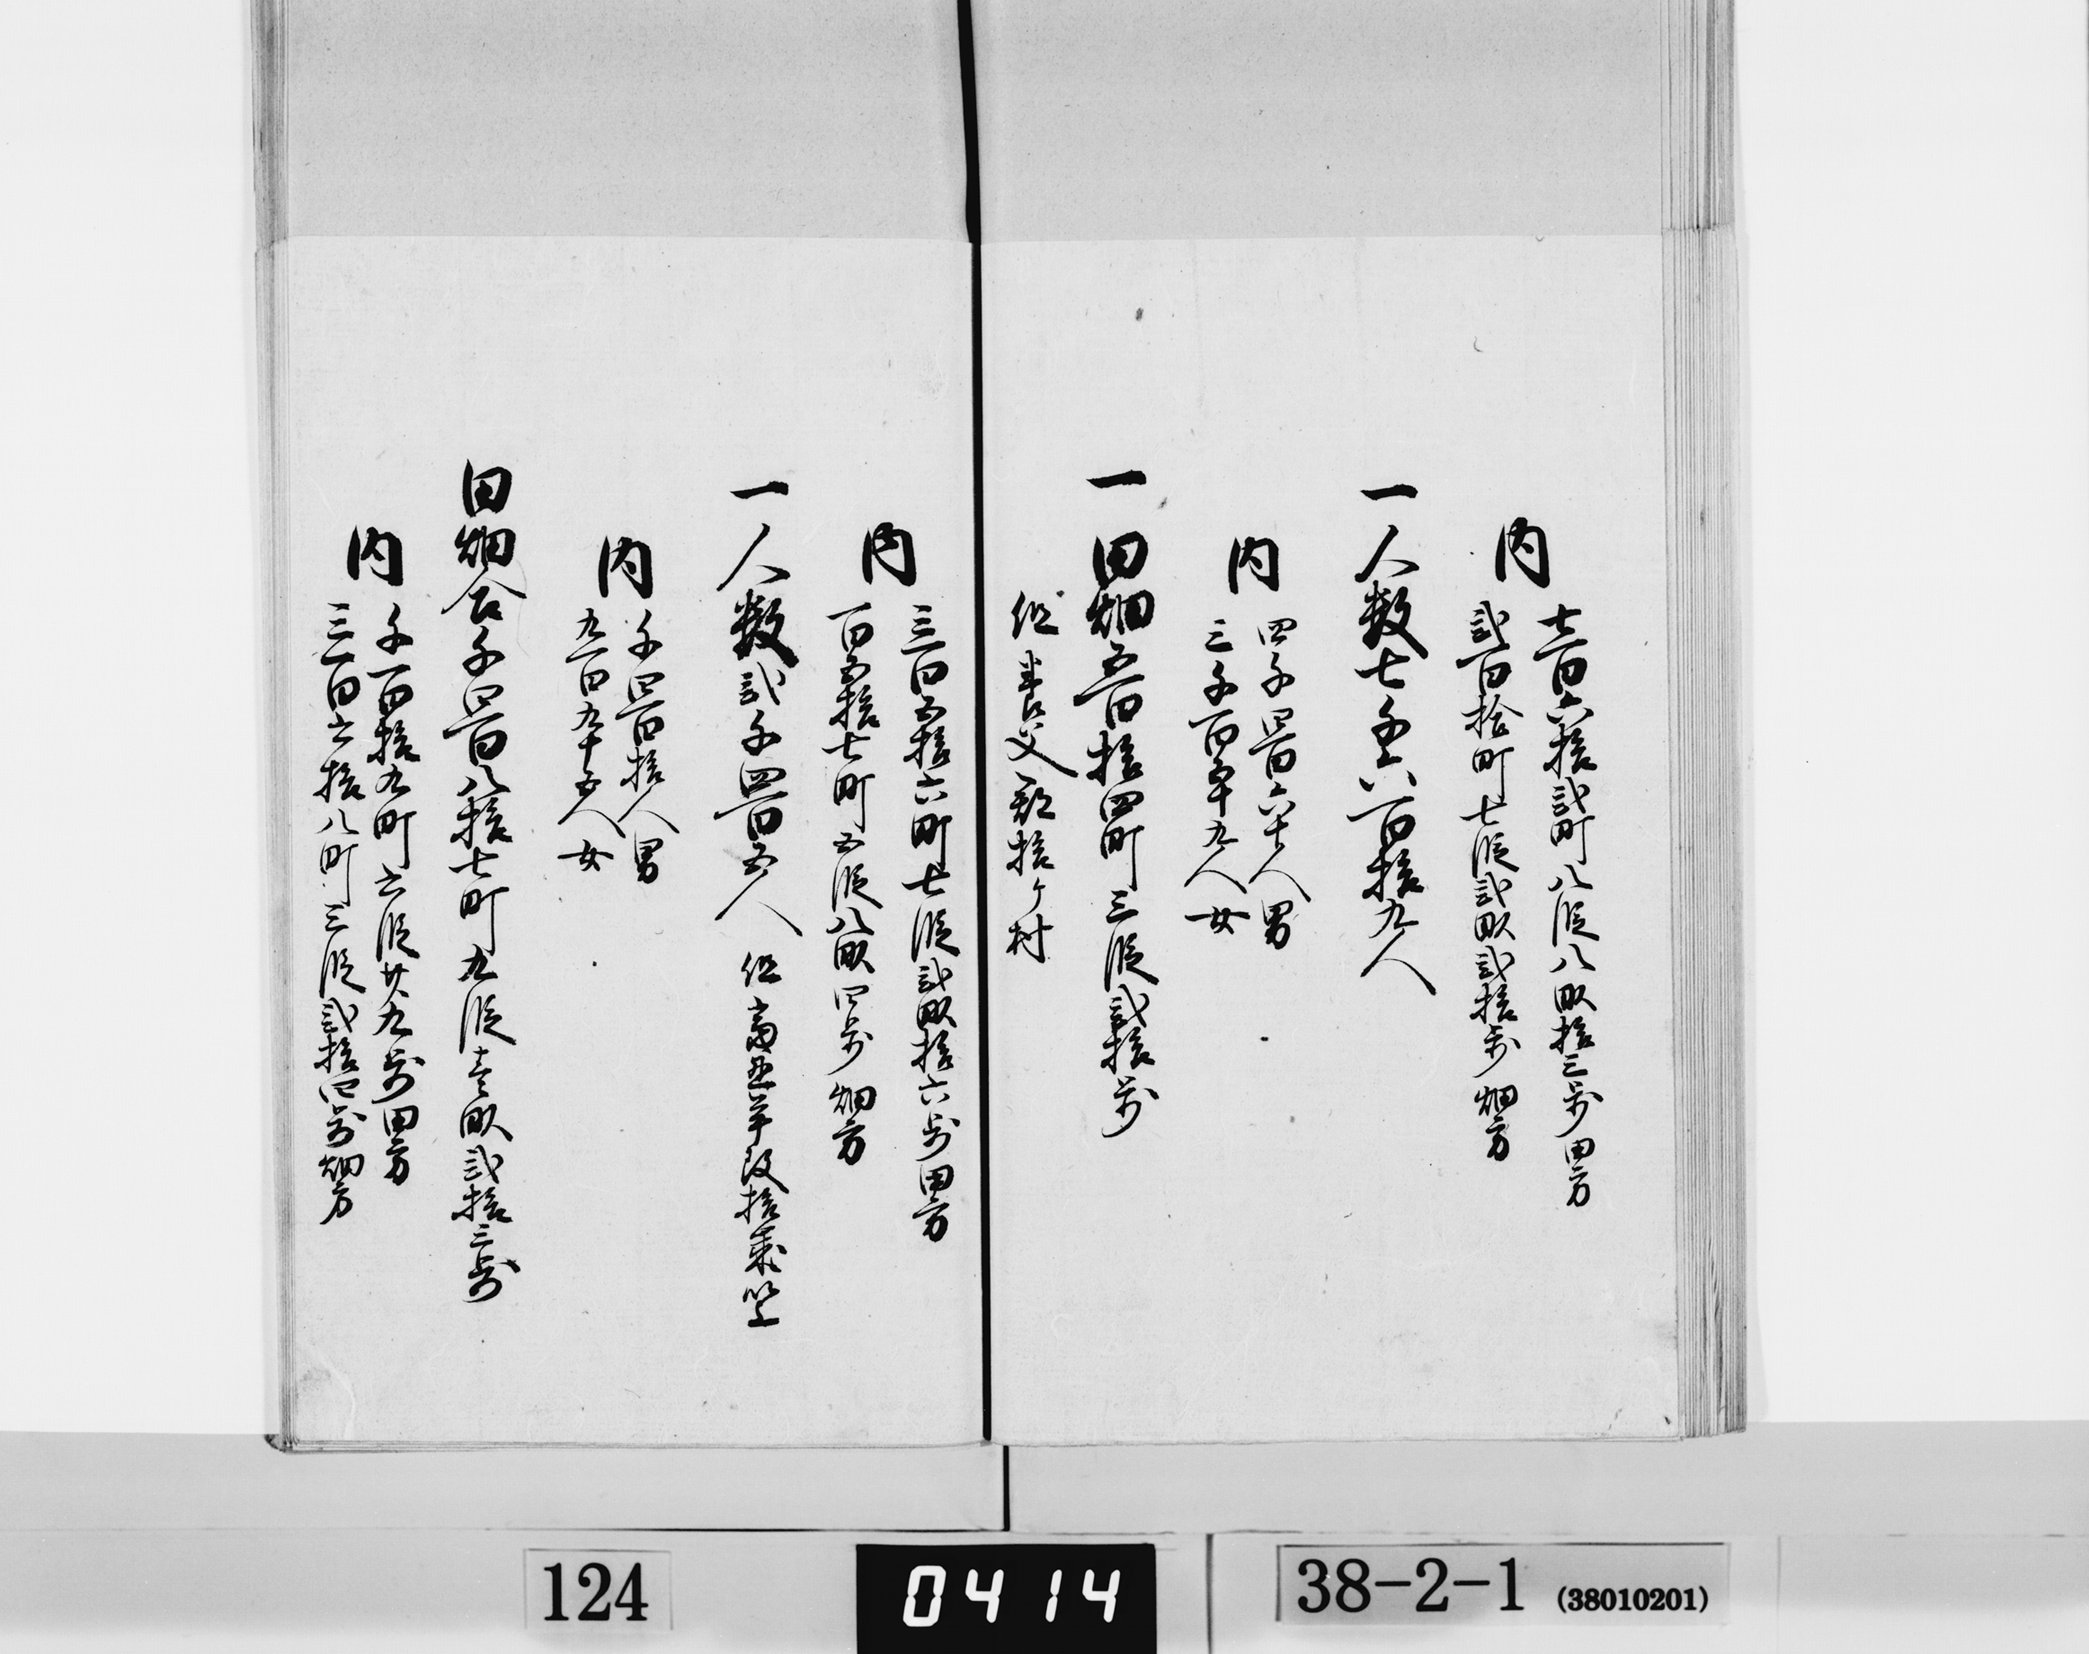 内 七百六拾弐町八段八畝拾三歩 田方
弐百拾町七段弐畝弐拾歩 畑方
一人数七千六百拾九人
内 四千四百六十人男
三千百五十九人女
一田畑五百拾四町三段弐拾歩
但養父郡拾ヶ村
内 三百五拾六町七段弐畝拾六歩 田方
百五拾七町五段八畝四歩 畑方
一人数弐千四百五人 但 丑年改拾歳以上
内 千四百拾人男
九百九十五人女
田畑合千四百八拾七町九段壱畝弐拾三歩
内 千百拾九町六段廿九歩田方
三百六拾八町三段弐拾四歩畑方
124
0414
38-2-1 (38010201)